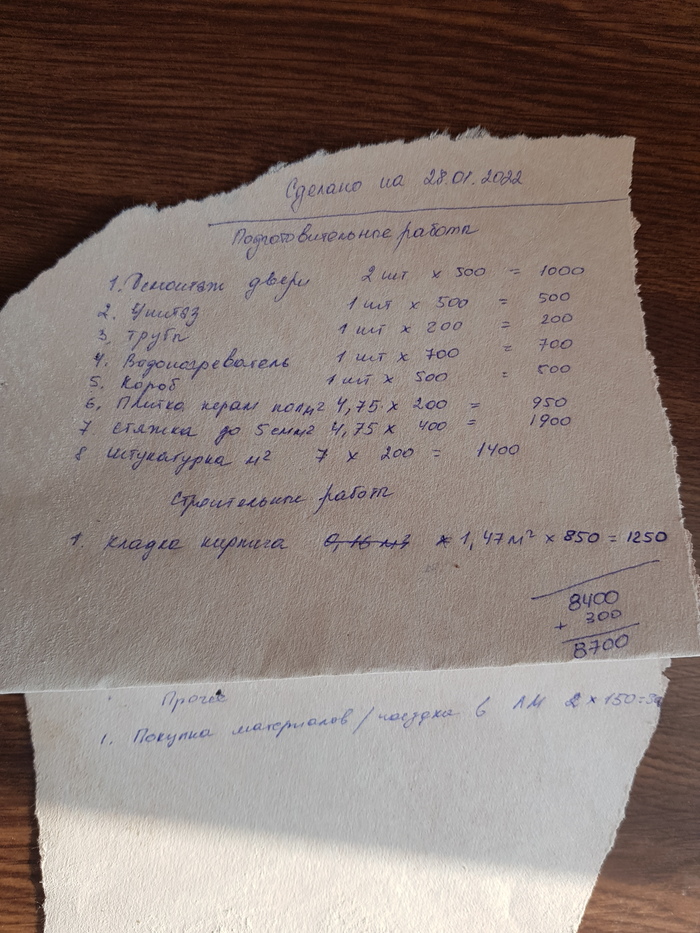 Сделано на 28.01.2022
Подготовительные работы
1. Демонтаж двери 2 шт × 500 = 1000
2. Унитаз 1 шт × 500 = 500
3. трубы 1 шт × 200 = 200
4. Водонагреватель 1 шт × 700 = 700
5. Короб 1 шт × 500 = 500
6. Плитка керам пол м² 4,75 × 200 = 950
7 стяжка до 5 см м² 4,75 × 400 = 1900
8 Штукатурка м² 7 × 200 = 1400
Строительные работы
1. кладка кирпича 0,16 м³ × 1,47 м² × 850 = 1250
8400
+ 300
8700
Прочее
1. Покупка материалов / поездка в ЛМ 2 × 150 = 30